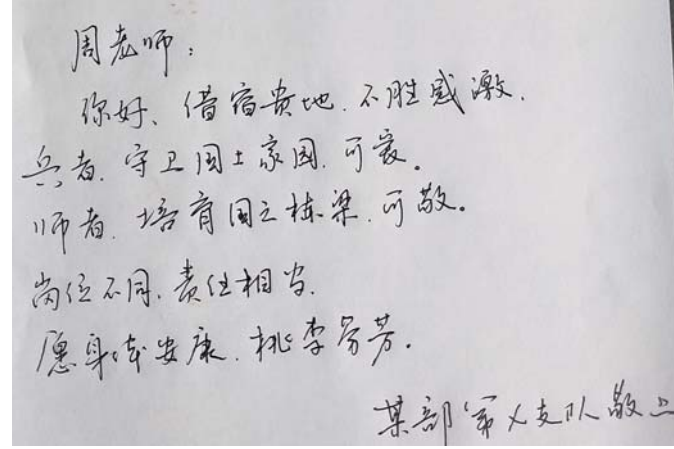 周老师：
你好、借宿贵地、不胜感激.
兵者、守卫国土家园、可爱。
师者、培育国之栋梁、可敬。
岗位不同、责任相当.
愿身体安康、桃李芬芳.
某部第X支队敬上